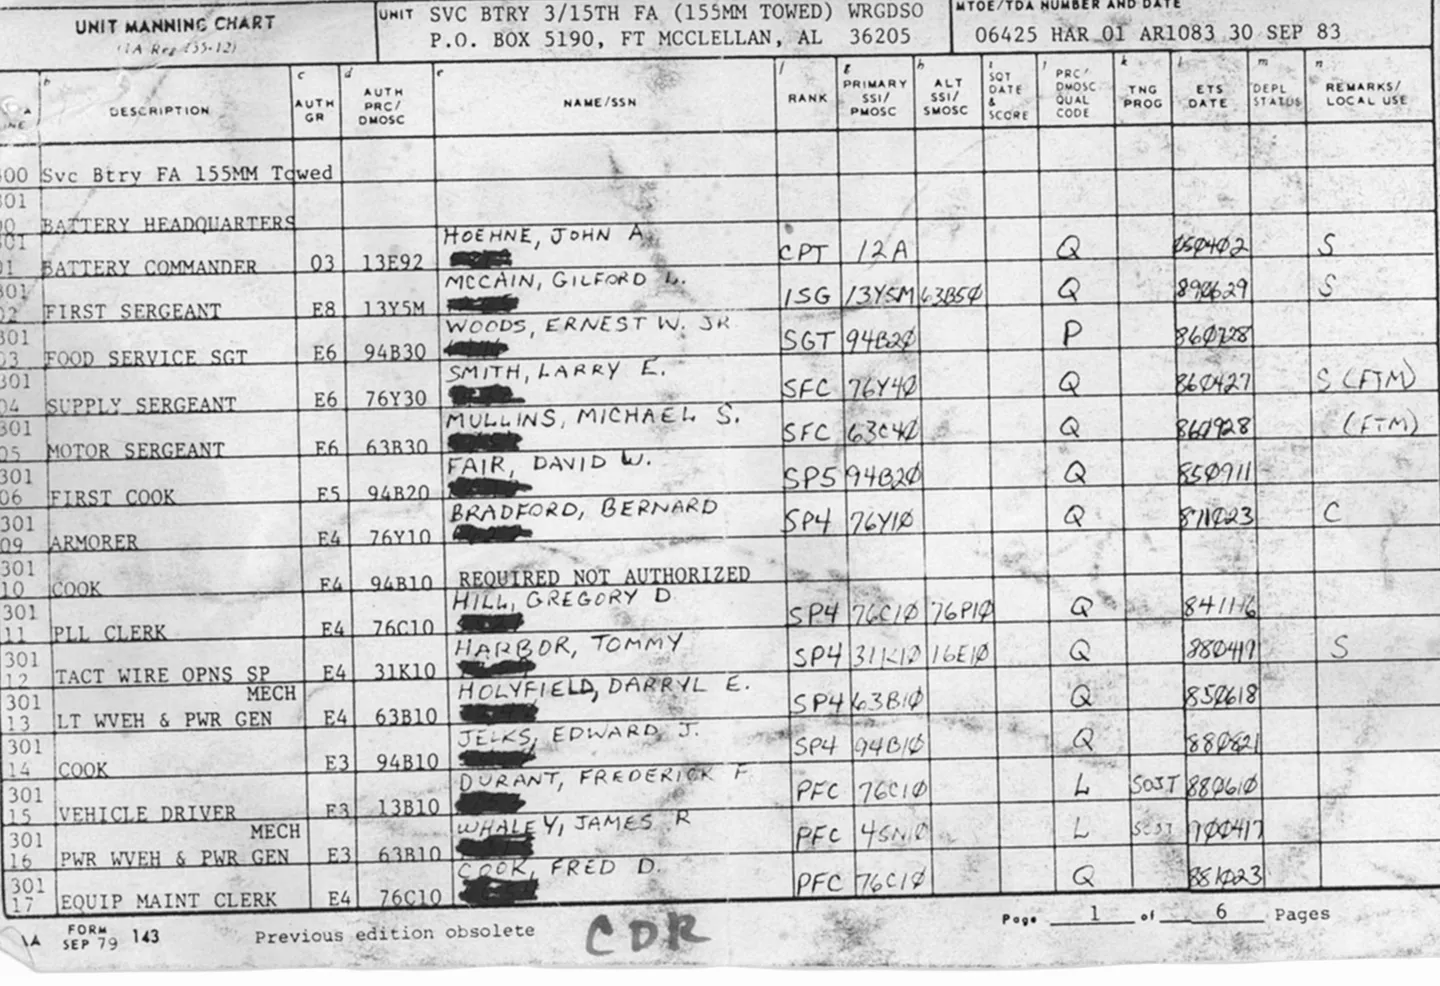 UNIT MANNING CHART
UNIT SVC BTRY 3/15TH FA (155MM TOWED) WRGDSO
P.O. BOX 5190, FT MCCLELLAN, AL 36205
MTOE/TDA NUMBER AND DATE
06425 HAR 01 AR1083 30 SEP 83
b DESCRIPTION c AUTH GR d AUTH PRC/ DMOSC e NAME/SSN f RANK g PRIMARY SSI/ PMOSC h ALT SSI/ SMOSC i SQT DATE & SCORE j PRC/ DMOSC QUAL CODE k TNG PROG l ETS DATE m DEPL STATUS n REMARKS/ LOCAL USE
00 Svc Btry FA 155MM Towed
301
BATTERY HEADQUARTERS
301 HOEHNE, JOHN A
01 BATTERY COMMANDER 03 13E92 CPT 12A Q S
301 MCCAIN, GILFORD
02 FIRST SERGEANT E8 13Y5M 1SG 13Y5M 63B5Ø Q 890629 S
301 WOODS, ERNEST W. JR
03 FOOD SERVICE SGT E6 94B30 SGT 94B2Ø P 860728
301 SMITH, LARRY E.
04 SUPPLY SERGEANT E6 76Y30 SFC 76Y4Ø Q 860427 S (FTM)
301 MULLINS, MICHAEL S.
05 MOTOR SERGEANT E6 63B30 SFC 63C4Ø Q (FTM)
301 FAIR, DAVID W.
06 FIRST COOK E5 94B20 SP5 94B2Ø Q 850911
301 BRADFORD, BERNARD
09 ARMORER E4 76Y10 SP4 76Y1Ø Q 871023 C
301
10 COOK E4 94B10 REQUIRED NOT AUTHORIZED
301 HILL, GREGORY D
11 PLL CLERK E4 76C10 SP4 76C1Ø 76P1Ø Q 841116
301 HARBOR, TOMMY
12 TACT WIRE OPNS SP E4 31K10 SP4 31K1Ø 16E1Ø Q 880419 S
301 MECH HOLYFIELD, DARRYL E.
13 LT WVEH & PWR GEN E4 63B10 SP4 63B1Ø Q 850618
301 JELKS, EDWARD J.
14 COOK E3 94B10 SP4 94B1Ø Q 880821
301 DURANT, FREDERICK F
15 VEHICLE DRIVER E3 13B10 PFC 76C1Ø L SOJT 880610
301 MECH WHALEY, JAMES R
16 PWR WVEH & PWR GEN E3 63B10 PFC 45N1Ø L 900417
301 COOK, FRED D.
17 EQUIP MAINT CLERK E4 76C10 PFC 76C1Ø Q 881023
FORM SEP 79 143 Previous edition obsolete CDR Page 1 of 6 Pages